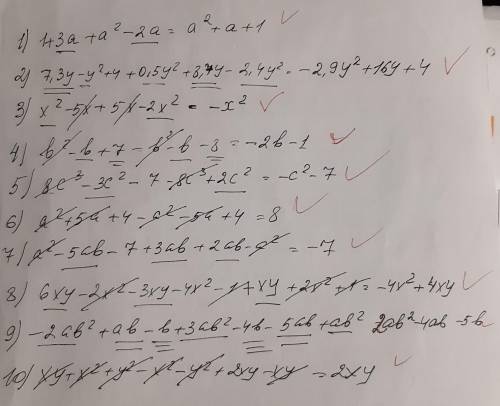 1) 1+3a+a²-2a = a²+a+1
2) 7,3y-y²+4+0,5y²+8,7y-2,4y² = -2,9y²+16y+4
3) x²-5x+5x-2x² = -x²
4) b²-b+7-b²-b-8 = -2b-1
5) 8c³-3c²-7-8c³+2c² = -c²-7
6) a²+5a+4-a²-5a+4 = 8
7) a²-5ab-7+3ab+2ab-a² = -7
8) 6xy-2x²-3xy-4x²-1+xy+2x²+1 = -4x²+4xy
9) -2ab²+ab-b+3ab²-4b-5ab+ab² 2ab²-4ab-5b
10) xy+x²+y²-x²-y²+2xy-xy = 2xy